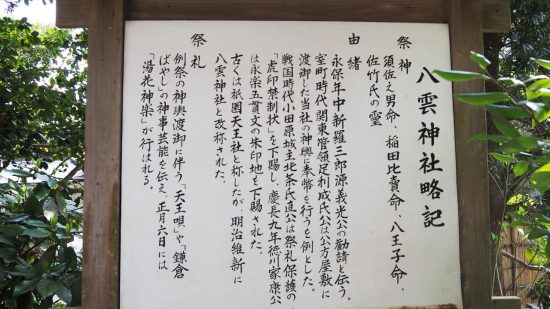 八雲神社略記
祭神
須佐之男命、稲田比賣命、八王子命、
佐竹氏の霊
由緒
永保年中新羅三郎源義光公の勧請と伝う。
室町時代関東管領足利成氏公は公方屋敷に
渡御した当社の神輿に奉幣を行うを例とした。
戦国時代小田原城主北条氏直公は祭礼保護の
「虎印禁制状」を下賜し、慶長九年徳川家康公
は永楽五貫文の朱印地を下賜された。
古くは祇園天王社と称したが、明治維新に
八雲神社と改称された。
祭礼
例祭の神輿渡御に伴う「天王唄」や「鎌倉
ばやし」の神事芸能を伝え、正月六日には
「湯花神楽」が行はれる。